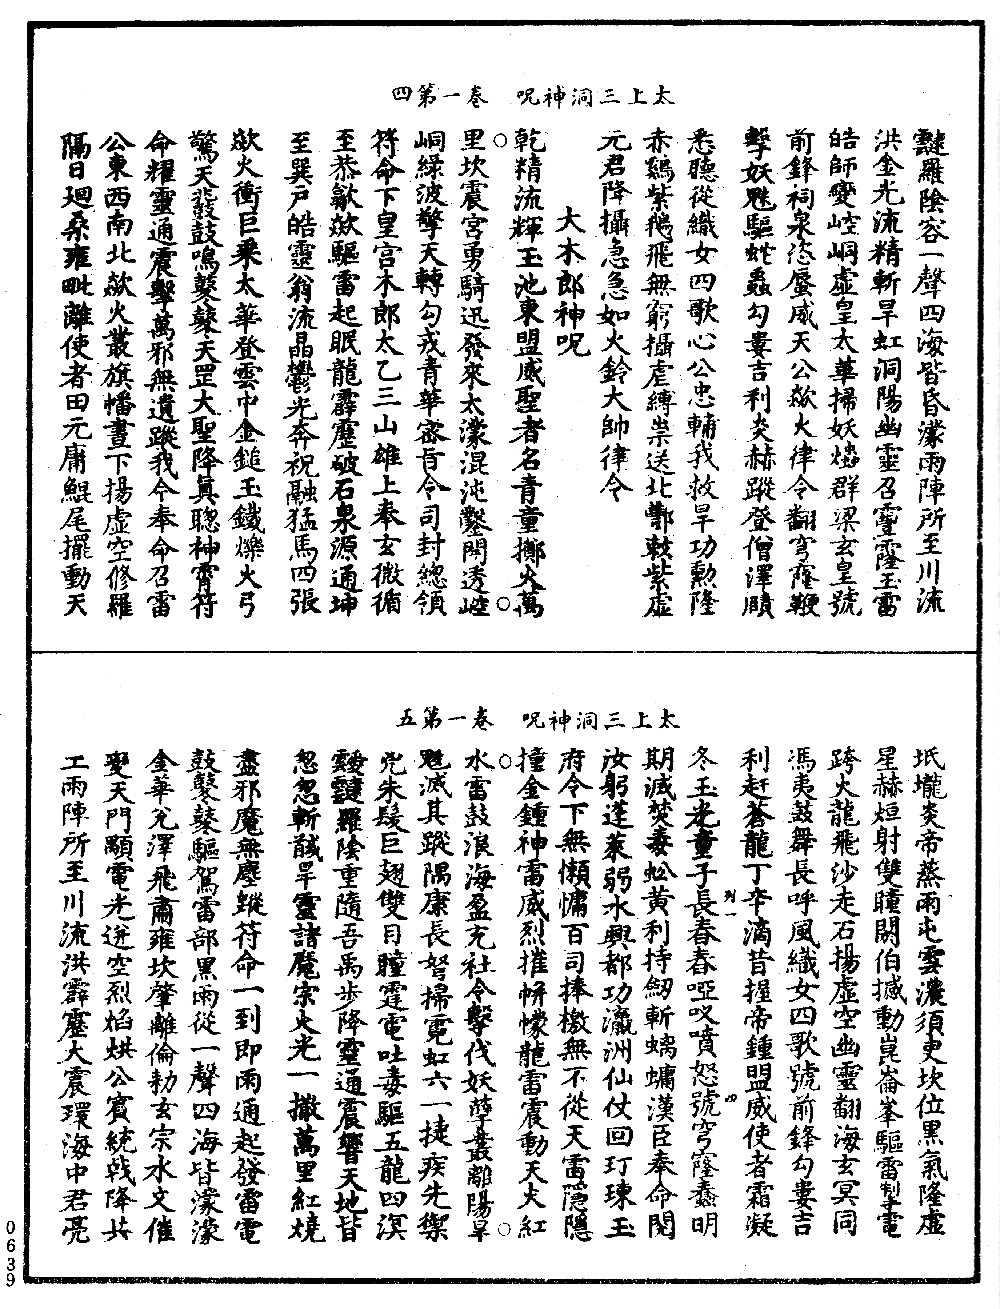 太上三洞神呪　卷一第四
靆羅陰容一聲四海皆昏濛雨陣所至川流
洪金光流精斬旱虹洞陽幽靈召霻霳玉雷
皓師變崆峒虛皇太華掃妖燐群梁玄皇號
前鋒祠泉恣蜃威天公欻火律令翻穹窿鞭
擊妖魁驅蛇蟲勾婁吉利炎赫蹤登僧澤頤
悉聽從織女四歌心公忠輔我救旱功勲隆
赤鷄紫鵝飛無窮攝虐縛祟送北酆敕紫虛
元君降攝急急如火鈴大帥律令
大木郎神呪
乾精流輝玉池東盟威聖者名青童擲火萬
里坎震宮勇騎迅發來太濛混沌鑿開透崆
峒綠波擎天轉勾戎青華密旨令司封總領
符命下皇宮木郎太乙三山雄上奉玄微循
至恭歙欻驅雷起眠龍霹靂破石泉源通坤
至巽戶皓靈翁流晶鬱光奔祝融猛馬四張
欻火衝巨乘太華登雲中金鎚玉鐵爍火弓
驚天發鼓鳴鼕鼕天罡大聖降真聰神霄符
命耀靈通震擊萬邪無遺蹤我今奉命召雷
公東西南北欻火叢旗幡晝下揚虛空修羅
隔日廻桑雍毗離使者田元庸鯤尾擺動天
太上三洞神呪　卷一第五
坻壠炎帝蒸雨屯雲濃須史坎位黑氣隆虛
星赫烜射雙瞳閼伯撼動崑崙峯驅雷掣電
跨火龍飛沙走石揚虛空幽靈翻海玄冥同
馮夷鼓舞長呼風織女四歌號前鋒勾婁吉
利赶蒼龍丁辛滴昔握帝鍾盟威使者霜凝
冬玉光童子長春春啞㕮噴怒號穹窿蠢明
期滅焚毒蚣黃利持釰斬螭蟰漢臣奉命閱
汝躬蓬萊弱水興都功瀛洲仙仗回玎瑓玉
府令下無懶慵百司捧檄無不從天雷隱隱
撞金鍾神雷威烈摧帡幪龍雷震動天火紅
水雷鼓浪海盈充社令擊伐妖孽叢離陽旱
魃滅其蹤隅康長弩掃霓虹六一捷疾先禦
兇朱髮巨翅雙目瞳霆電吐毒驅五龍四溟
靉靆羅陰重隨吾禹步降靈通震響天地皆
忽忽斬馘旱靈諸魔宗火光一撒萬里紅燒
盡邪魔無塵蹤符命一到即雨通起發雷電
鼓鼕鼕驅駕雷部黑雨從一聲四海皆濛濛
金華兌澤飛肅雍坎肇離倫勑玄宗水文催
變天門顯電光迸空烈焰烘公賓統戟降共
工雨陣所至川流洪霹靂大震環海中君亮
列一
四
0639